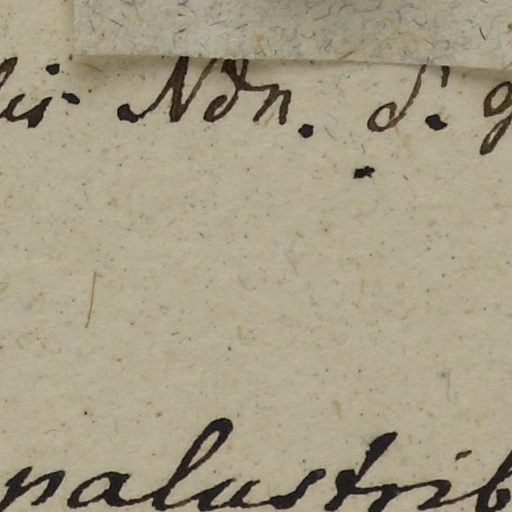 lis Ndn. d. g
palustrib